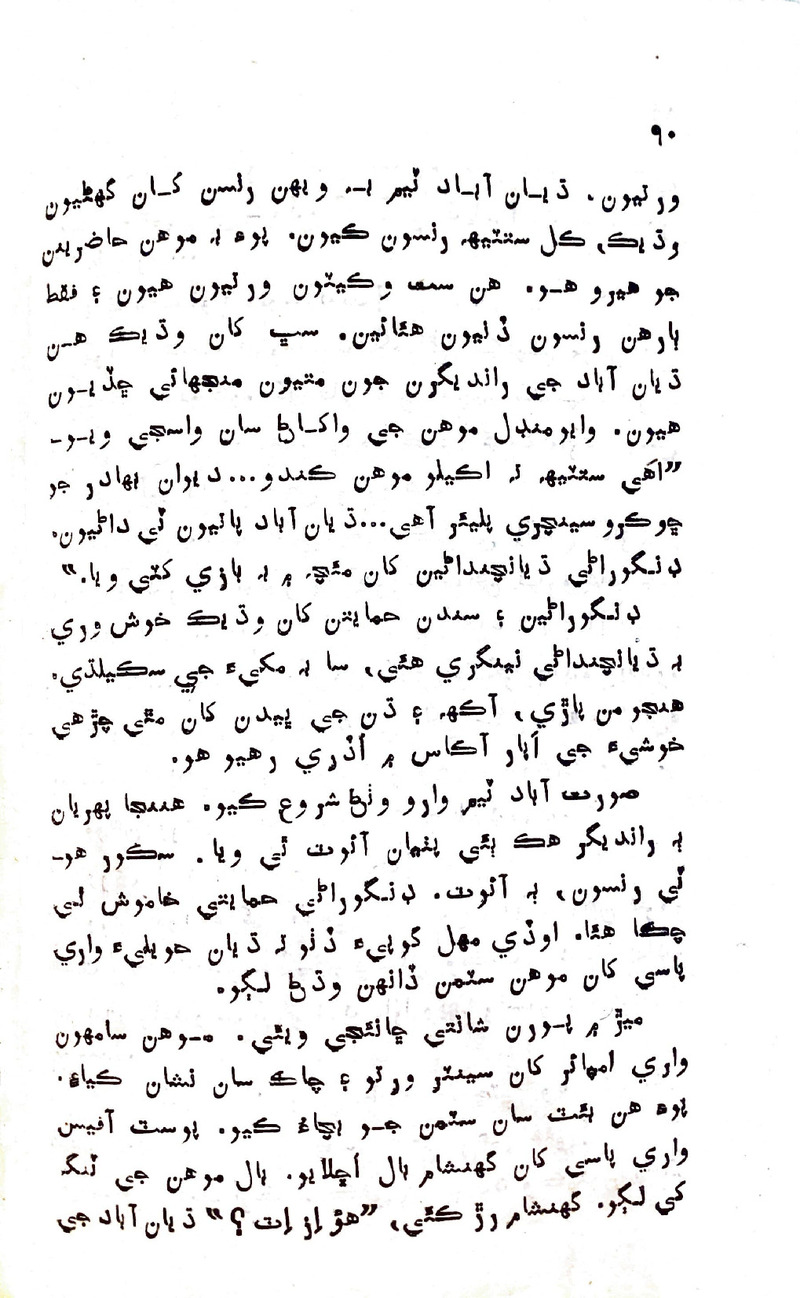 ٩٠
ورتيون. ڌيان آباد ٽيم به ويهن رنسن کان گھڻيون
وڌيڪ، ڪل ستٽيهه رنسون ڪيون. پوءِ به موهن حاضرين
جو هيرو هو. هن ست وڪيٽون ورتيون هيون ۽ فقط
ٻارهن رنسون ڏنيون هئائين. سڀ کان وڌيڪ هن
ڌيان آباد جي رانديگرن جون متيون منجھائي ڇڏيون
هيون. وايومنڊل موهن جي واکاڻ سان واسجي ويو۔
”اَهي ستٽيهه ته اڪيلو موهن ڪندو... ديوان بهادر جو
ڇوڪرو سينچري پليئر آهي... ڌيان آباد پاڻيون ٿي داڻيون.
ڊنگوراڻي ڌيانچنداڻين کان مئچ ۾ به بازي کٽي ويا.“
ڊنگوراڻين ۽ سندن حمايتن کان وڌيڪ خوش وري
به ڌيانچنداڻي نينگري هئي، سا به مکيءَ جي سڪيلڌي.
هنجو من پاڙي، آکهه ۽ ڌن جي ڀيدن کان مٿي چڙهي
خوشيءَ جي اَپار آڪاس ۾ اُڏري رهيو هو.
صورت آباد ٽيم وارو وٺڻ شروع ڪيو. هنجا پهريان
به رانديگر هڪ ٻئي پٺيان آئوٽ ٿي ويا. سڪور هو۔
ٽي رنسون، به آئوٽ. ڊنگوراڻي حمايتي خاموش ٿي
چڪا هئا. اوڏي مهل گوپيءَ ڏٺو ته ڌيان حويليءَ واري
پاسي کان موهن سٽمن ڏانهن وڌڻ لڳو.
ميڙ ۾ پورن شانتي ڇانئجي ويئي. موهن سامهون
واري امپائر کان سينٽر ورتو ۽ چاڪ سان نشان ڪيائين.
پوءِ هن بئٽ سان سٽمن جو بچاءُ ڪيو. پوسٽ آفيس
واري پاسي کان گھنشام بال اُڇلايو. بال موهن جي ٽنگ
کي لڳو. گھنشام رڙ ڪئي، ”هؤ از اِٽ؟“ ڌيان آباد جي